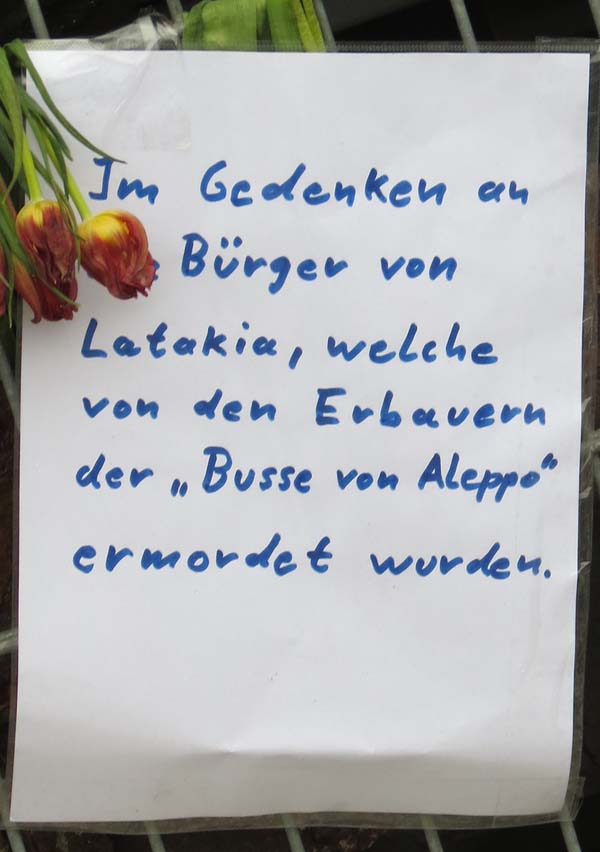 Im Gedenken an
Bürger von
Latakia, welche
von den Erbauern
der „Busse von Aleppo“
ermordet wurden.